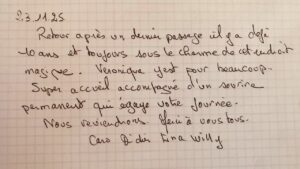 23.11.25
Retour après un dernier passage il y a déjà
10 ans et toujours sous le charme de cet endroit
magique. Véronique y est pour beaucoup.
Super accueil accompagné d'un sourire
permanent qui égaye votre journée.
Nous reviendrons. Merci à vous tous.
Caro Didier Tina Willy